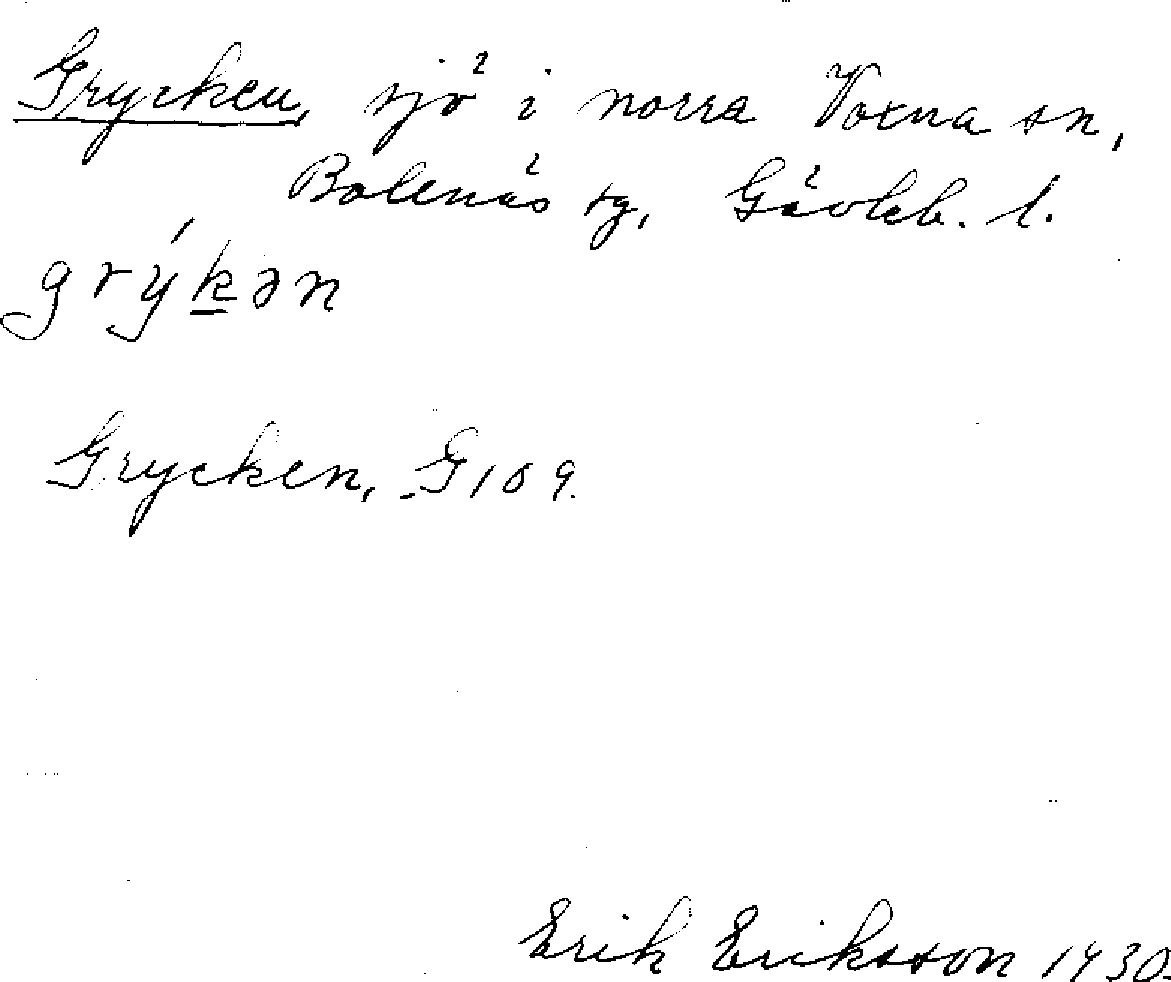 Grycken, sjö i norra Voxna sn,
Bollnäs tg, Gävleb. l.
grýk̲ən
Grycken, G109.
Erik Eriksson 1930.